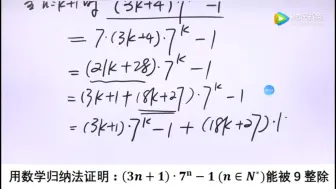 当 n=k+1 时 (3k+4)·7^k -1
= 7·(3k+4)·7^k -1
= (21k+28)·7^k -1
= (3k+1+18k+27)·7^k -1
= (3k+1)·7^k -1 + (18k+27)·
腾讯视频
用数学归纳法证明：(3n+1)·7ⁿ-1 (n∈N*)能被 9 整除